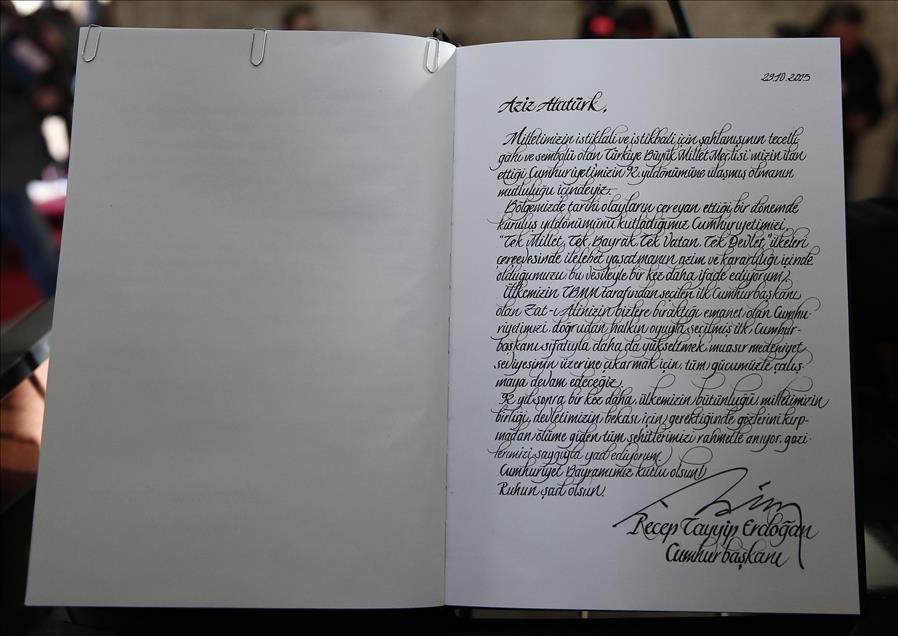 29.10.2015
Aziz Atatürk,
Milletimizin istiklali ve istikbali için şahlanışının tecelli
gâhı ve sembolü olan Türkiye Büyük Millet Meclisi'mizin ilan
ettiği, Cumhuriyetimizin 92. yıldönümüne ulaşmış olmanın
mutluluğu içindeyiz.
Bölgemizde tarihi olayların cereyan ettiği bir dönemde
kuruluş yıldönümünü kutladığımız Cumhuriyetimizi,
"Tek Millet, Tek Bayrak, Tek Vatan, Tek Devlet," ilkeleri
çerçevesinde ilelebet yaşatmanın azim ve kararlılığı içinde
olduğumuzu, bu vesileyle bir kez daha ifade ediyorum.
Ülkemizin TBMM tarafından seçilen ilk Cumhurbaşkanı
olan Zat-ı Alinizin bizlere bıraktığı emanet olan Cumhu-
riyetimizi, doğrudan halkın oyuyla seçilmiş ilk Cumhur-
başkanı sıfatıyla daha da yükseltmek, muasır medeniyet
seviyesinin üzerine çıkarmak için, tüm gücümüzle çalış-
maya devam edeceğiz.
92 yıl sonra bir kez daha, ülkemizin bütünlüğü, milletimizin
birliği, devletimizin bekası için, gerektiğinde gözlerini kırp-
madan ölüme giden tüm şehitlerimizi rahmetle anıyor, gazi-
lerimizi saygıyla yad ediyorum.
Cumhuriyet Bayramımız kutlu olsun!
Ruhun şad olsun.
Recep Tayyip Erdoğan
Cumhurbaşkanı